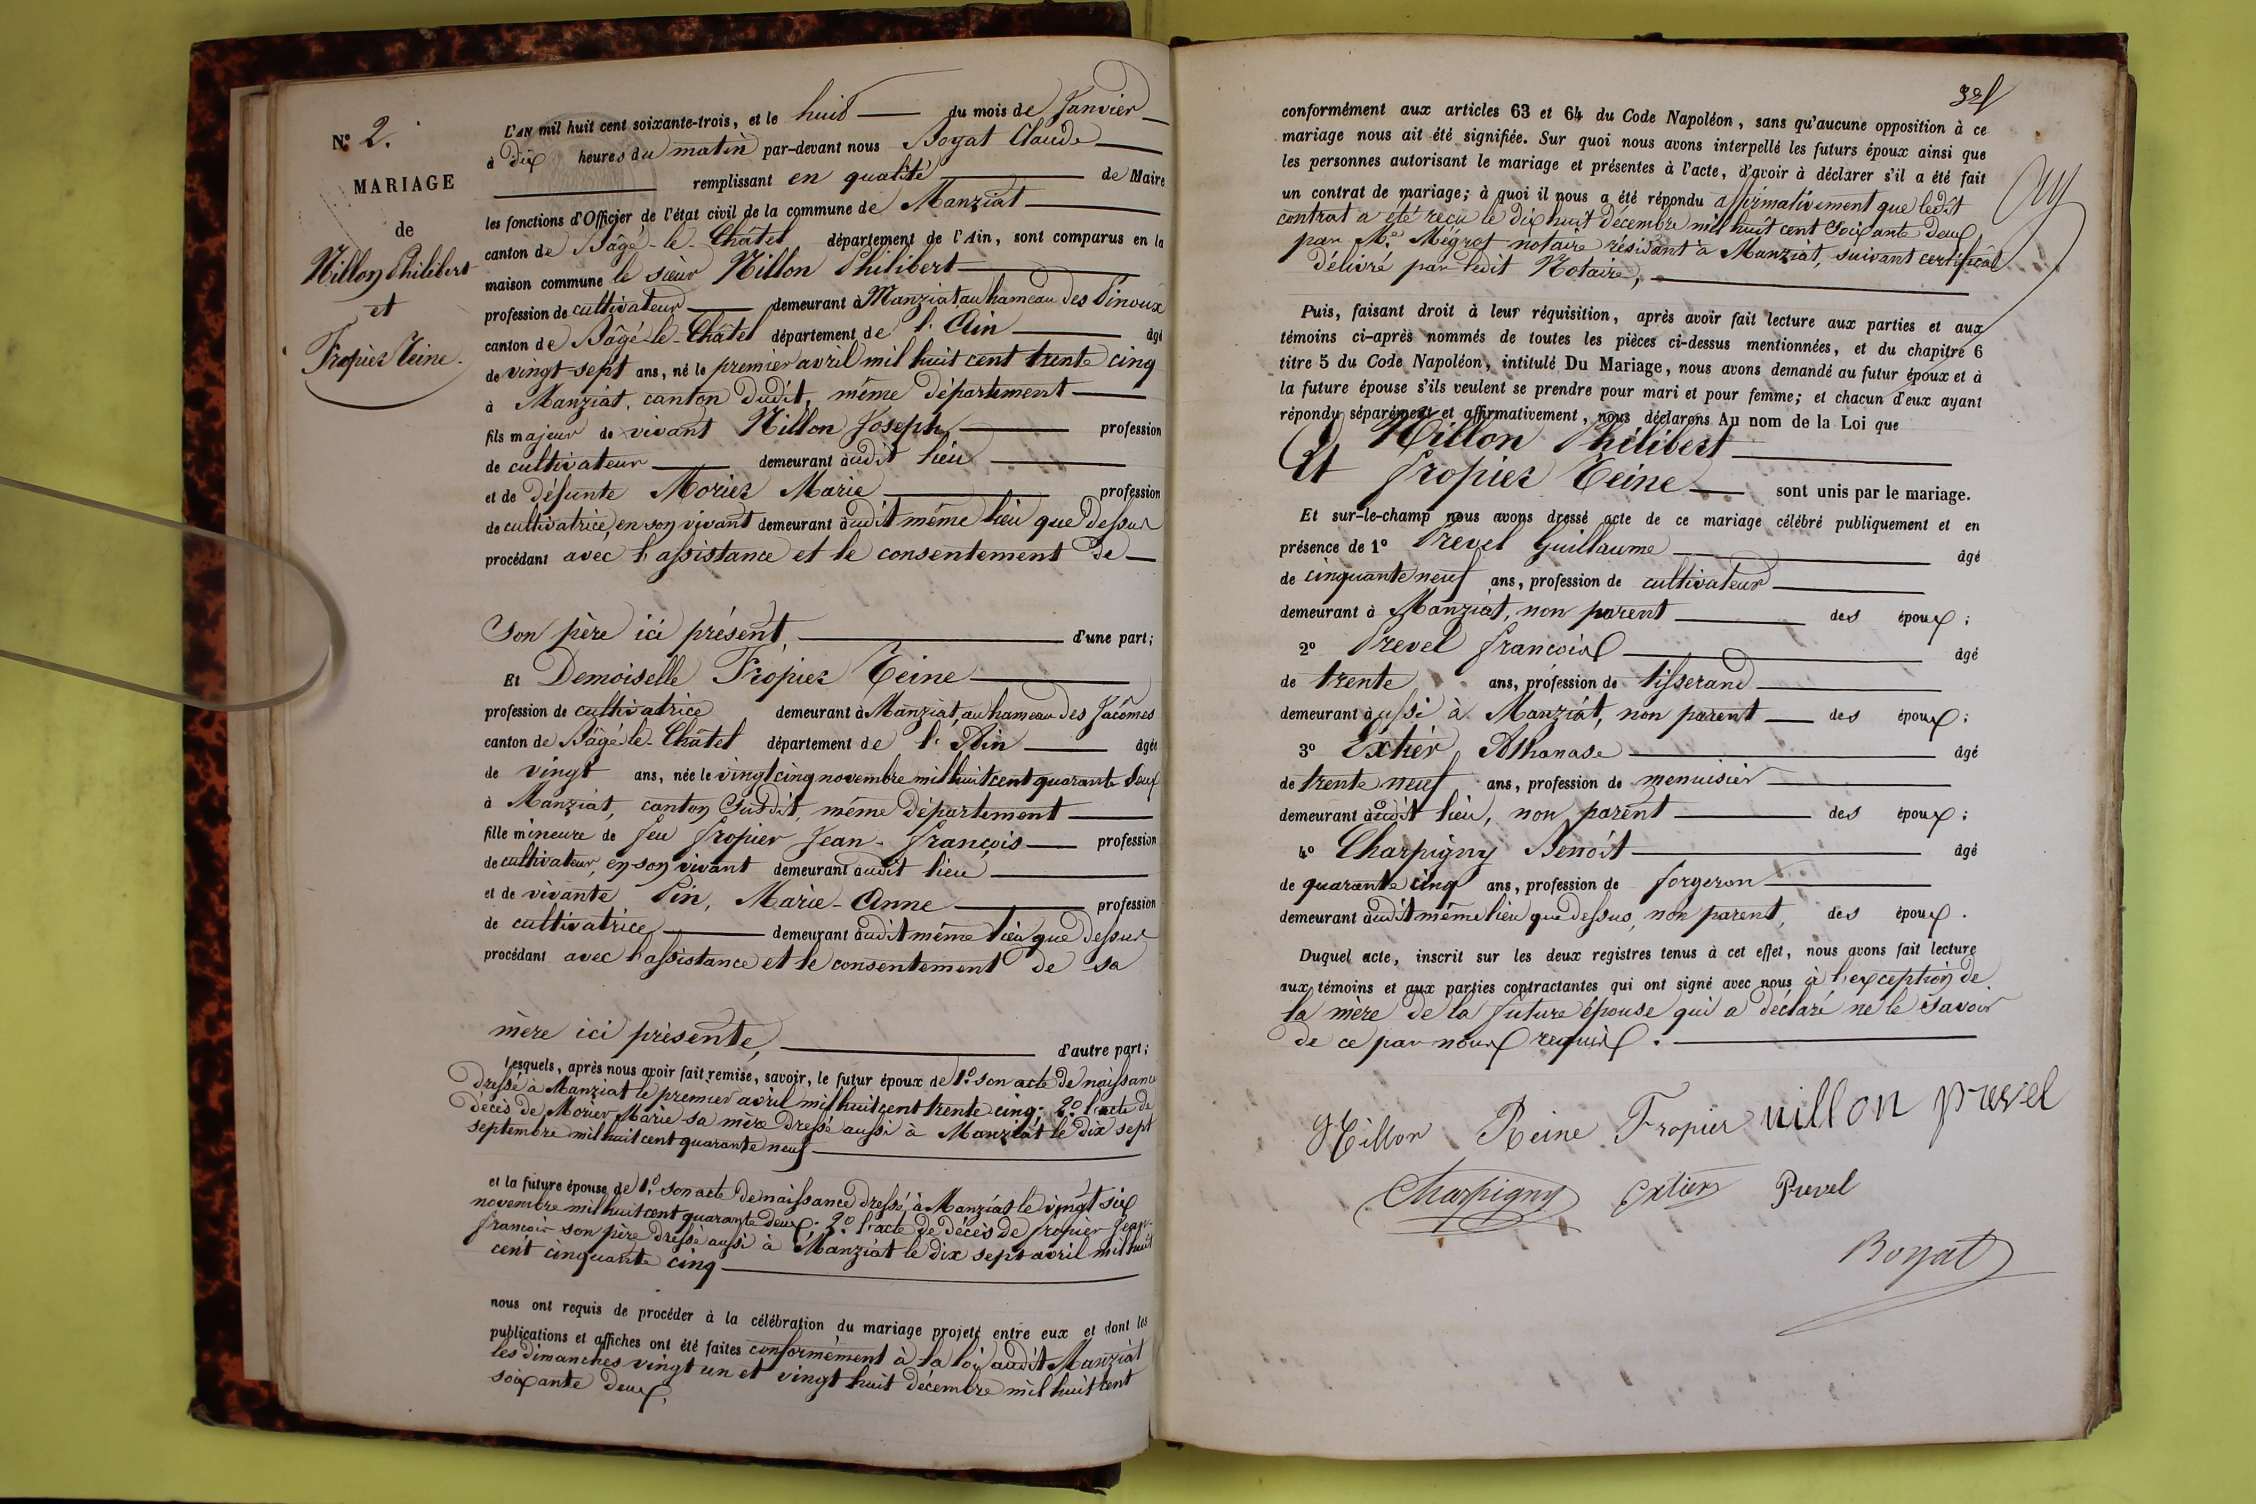 N° 2.
MARIAGE
de
Nillon Philibert
et
Fropier Reine.
L'AN mil huit cent soixante-trois, et le huit du mois de Janvier
à dix heures du matin par-devant nous Boyat Claude
remplissant en qualité de Maire
les fonctions d'Officier de l'état civil de la commune de Manziat
canton de Bâgé-le-Châtel département de l'Ain, sont comparus en la
maison commune le sieur Nillon Philibert
profession de cultivateur demeurant à Manziat au hameau des Pinoux
canton de Bâgé-le-Châtel département de l'Ain âgé
de vingt-sept ans, né le premier avril mil huit cent trente cinq
à Manziat, canton dudit, même département
fils majeur de vivant Nillon Joseph profession
de cultivateur demeurant audit lieu
et de défunte Morier Marie profession
de cultivatrice, en son vivant demeurant audit même lieu que dessus
procédant avec l'assistance et le consentement de
Son père ici présent, d'une part;
Et Demoiselle Fropier Reine
profession de cultivatrice demeurant à Manziat, au hameau des Jacômes
canton de Bâgé-le-Châtel département de l'Ain âgée
de vingt ans, née le vingt cinq novembre mil huit cent quarante deux
à Manziat, canton susdit, même département
fille mineure de feu Fropier Jean-François profession
de cultivateur, en son vivant demeurant audit lieu
et de vivante Pin, Marie-Anne profession
de cultivatrice demeurant audit même lieu que dessus
procédant avec l'assistance et le consentement de sa
mère ici présente, d'autre part;
Lesquels, après nous avoir fait remise, savoir, le futur époux de 1° son acte de naissance
dressé à Manziat le premier avril mil huit cent trente cinq; 2° l'acte de
décès de Morier Marie sa mère dressé aussi à Manziat le dix sept
septembre mil huit cent quarante neuf
et la future épouse de 1° son acte de naissance dressé à Manziat le vingt six
novembre mil huit cent quarante deux; 2° l'acte de décès de Fropier Jean-
François son père dressé aussi à Manziat le dix sept avril mil huit
cent cinquante cinq
nous ont requis de procéder à la célébration du mariage projeté entre eux et dont les
publications et affiches ont été faites conformément à la loi audit Manziat
les dimanches vingt un et vingt huit décembre mil huit cent
soixante deux,
conformément aux articles 63 et 64 du Code Napoléon, sans qu'aucune opposition à ce
mariage nous ait été signifiée. Sur quoi nous avons interpellé les futurs époux ainsi que
les personnes autorisant le mariage et présentes à l'acte, d'avoir à déclarer s'il a été fait
un contrat de mariage; à quoi il nous a été répondu affirmativement que ledit
contrat a été reçu le dix huit décembre mil huit cent soixante deux
par Me Mégret notaire résidant à Manziat, suivant certificat
délivré par ledit Notaire,
Puis, faisant droit à leur réquisition, après avoir fait lecture aux parties et aux
témoins ci-après nommés de toutes les pièces ci-dessus mentionnées, et du chapitre 6
titre 5 du Code Napoléon, intitulé Du Mariage, nous avons demandé au futur époux et à
la future épouse s'ils veulent se prendre pour mari et pour femme; et chacun d'eux ayant
répondu séparément et affirmativement, nous déclarons Au nom de la Loi que
Nillon Philibert
Et Fropier Reine sont unis par le mariage.
Et sur-le-champ nous avons dressé acte de ce mariage célébré publiquement et en
présence de 1° Prevel Guillaume âgé
de cinquante neuf ans, profession de cultivateur
demeurant à Manziat, non parent des époux;
2° Prevel François âgé
de trente ans, profession de tisserand
demeurant aussi à Manziat, non parent des époux;
3° Extier Athanase âgé
de trente neuf ans, profession de menuisier
demeurant audit lieu, non parent des époux;
4° Charpigny Benoît âgé
de quarante cinq ans, profession de forgeron
demeurant audit même lieu que dessus, non parent, des époux.
Duquel acte, inscrit sur les deux registres tenus à cet effet, nous avons fait lecture
aux témoins et aux parties contractantes qui ont signé avec nous à l'exception de
la mère de la future épouse qui a déclaré ne le savoir
de ce par nous requis.
Nillon Reine Fropier nillon prevel
Charpigny Extier Prevel
Boyat